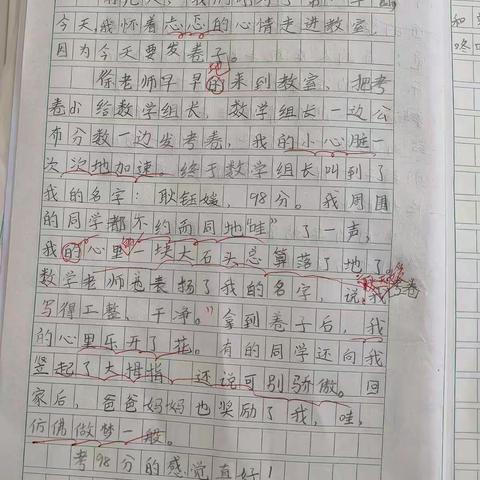 今天,我怀着忐忑的心情走进教室,
因为今天要发卷子。
徐老师早早的来到教室,把考
卷di给数学组长,数学组长一边公
布分数一边发考卷,我的小心脏一
次次地加速。终于数学组长叫到了
我的名字:耿钰媛,98分。我周围
的同学都不约而同地"哇"了一声,
我的心里一块大石头总算落了地了。
数学老师也表扬了我的名字,说我考卷
写得工整、干净。"拿到卷子后,我
的心里乐开了花。有的同学还向我
竖起了大拇指,还说可别骄傲。回
家后,爸爸妈妈也奖励了我,哇,
仿佛做梦一般。
考98分的感觉真好!